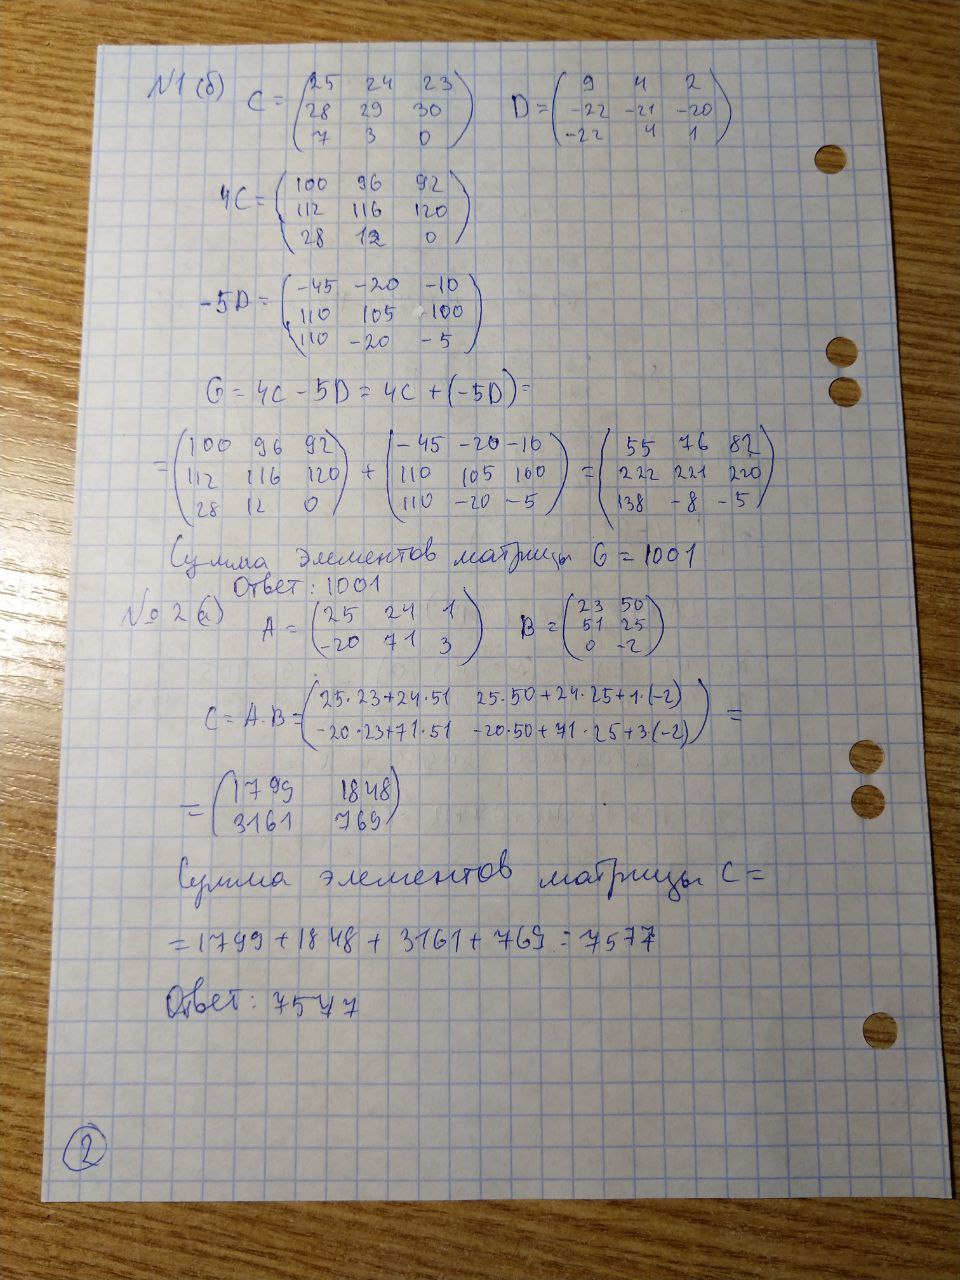 №1(б) C = (25 24 23
28 29 30
7 3 0) D = (9 4 2
-22 -21 -20
-22 4 1)
4C = (100 96 92
112 116 120
28 12 0)
-5D = (-45 -20 -10
110 105 100
110 -20 -5)
G = 4C - 5D = 4C + (-5D) =
= (100 96 92
112 116 120
28 12 0) + (-45 -20 -10
110 105 100
110 -20 -5) = (55 76 82
222 221 220
138 -8 -5)
Сумма элементов матрицы G = 1001
Ответ: 1001
№ 2(а) A = (25 24 1
-20 71 3) B = (23 50
51 25
0 -2)
C = A·B = (25·23+24·51 25·50+24·25+1·(-2)
-20·23+71·51 -20·50+71·25+3·(-2)) =
= (1799 1848
3161 769)
Сумма элементов матрицы C =
= 1799 + 1848 + 3161 + 769 = 7577
Ответ: 7577
2